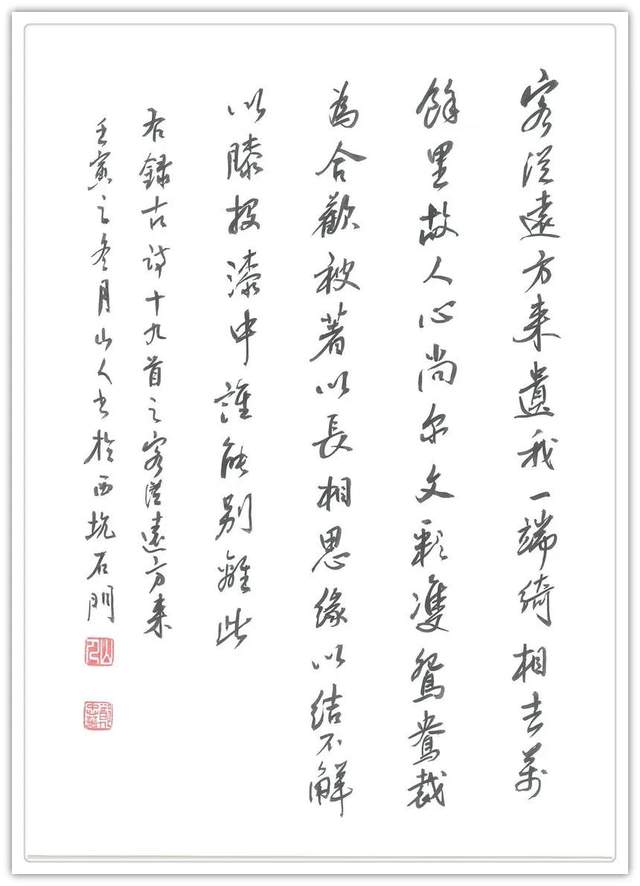 客從遠方來遺我一端綺相去萬
餘里故人心尚尔文彩雙鴛鴦裁
為合歡被著以長相思緣以結不解
以膝投漆中誰能别離此
右録古詩十九首之客從遠方來
壬寅之冬月山人书於西坑石門
山人